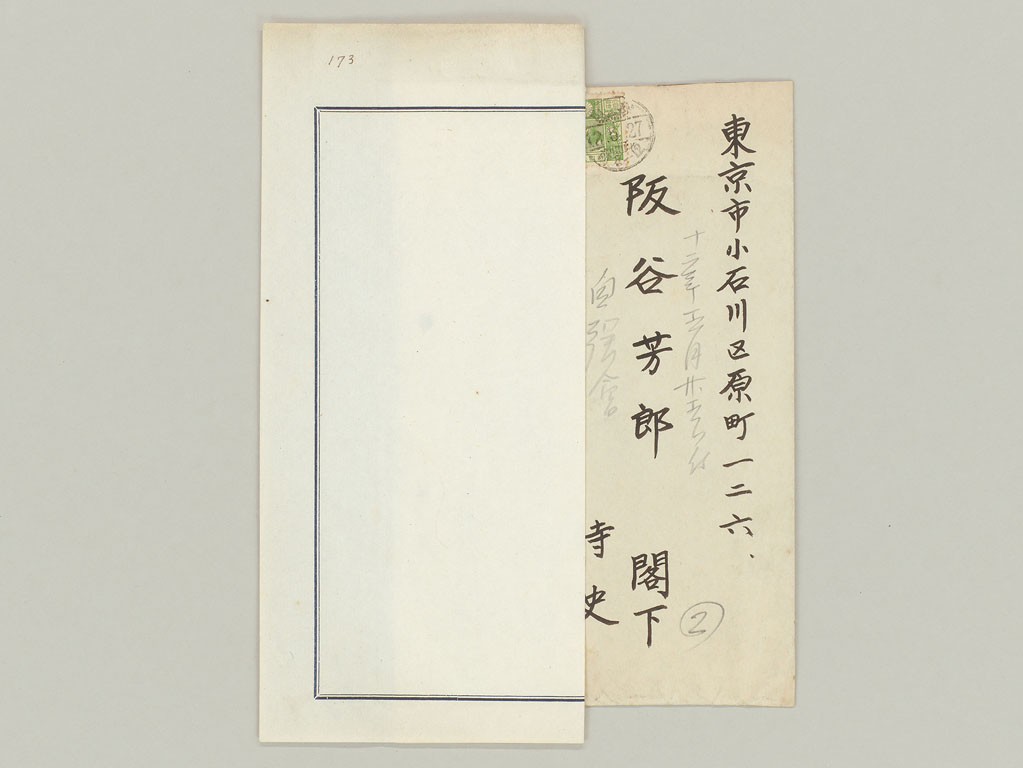 173
東京市小石川区原町一二六、
十二年五月廿五日付
阪谷芳郎閣下
②
自彊会
27